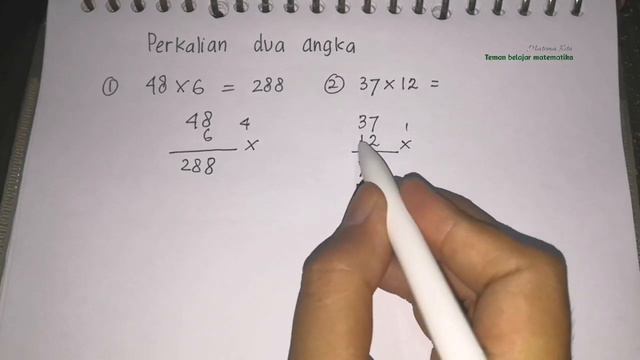 Matema Kita
Teman belajar matematika
Perkalian dua angka
① 48 × 6 = 288
48 4
6 ×
288
② 37 × 12 =
37 1
12 ×